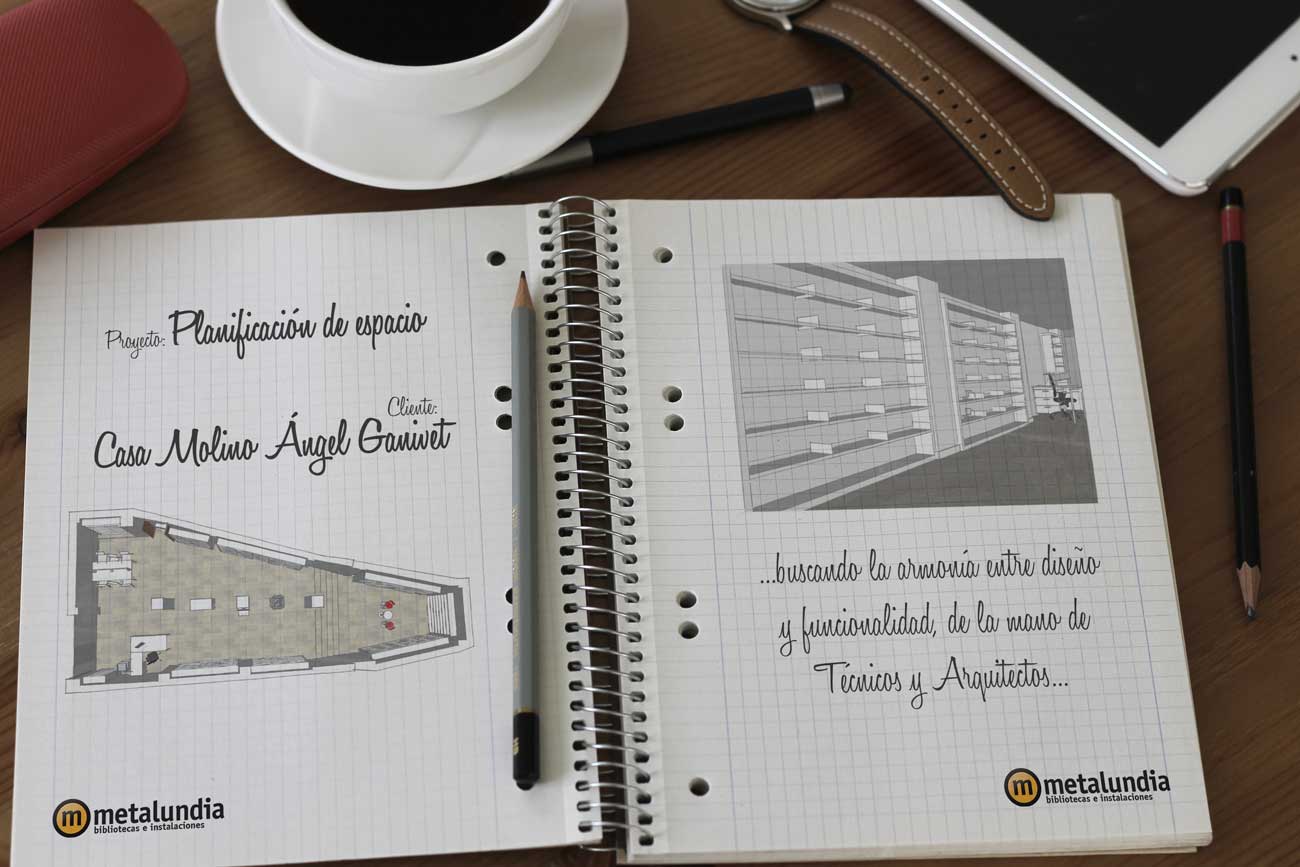 Proyecto: Planificación de espacio
Cliente:
Casa Molino Ángel Ganivet
m metalundia
bibliotecas e instalaciones
...buscando la armonía entre diseño
y funcionalidad, de la mano de
Técnicos y Arquitectos...
m metalundia
bibliotecas e instalaciones